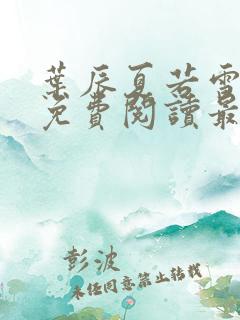 葉辰夏若雪
免費閱讀最
彭波
未经同意禁止转载